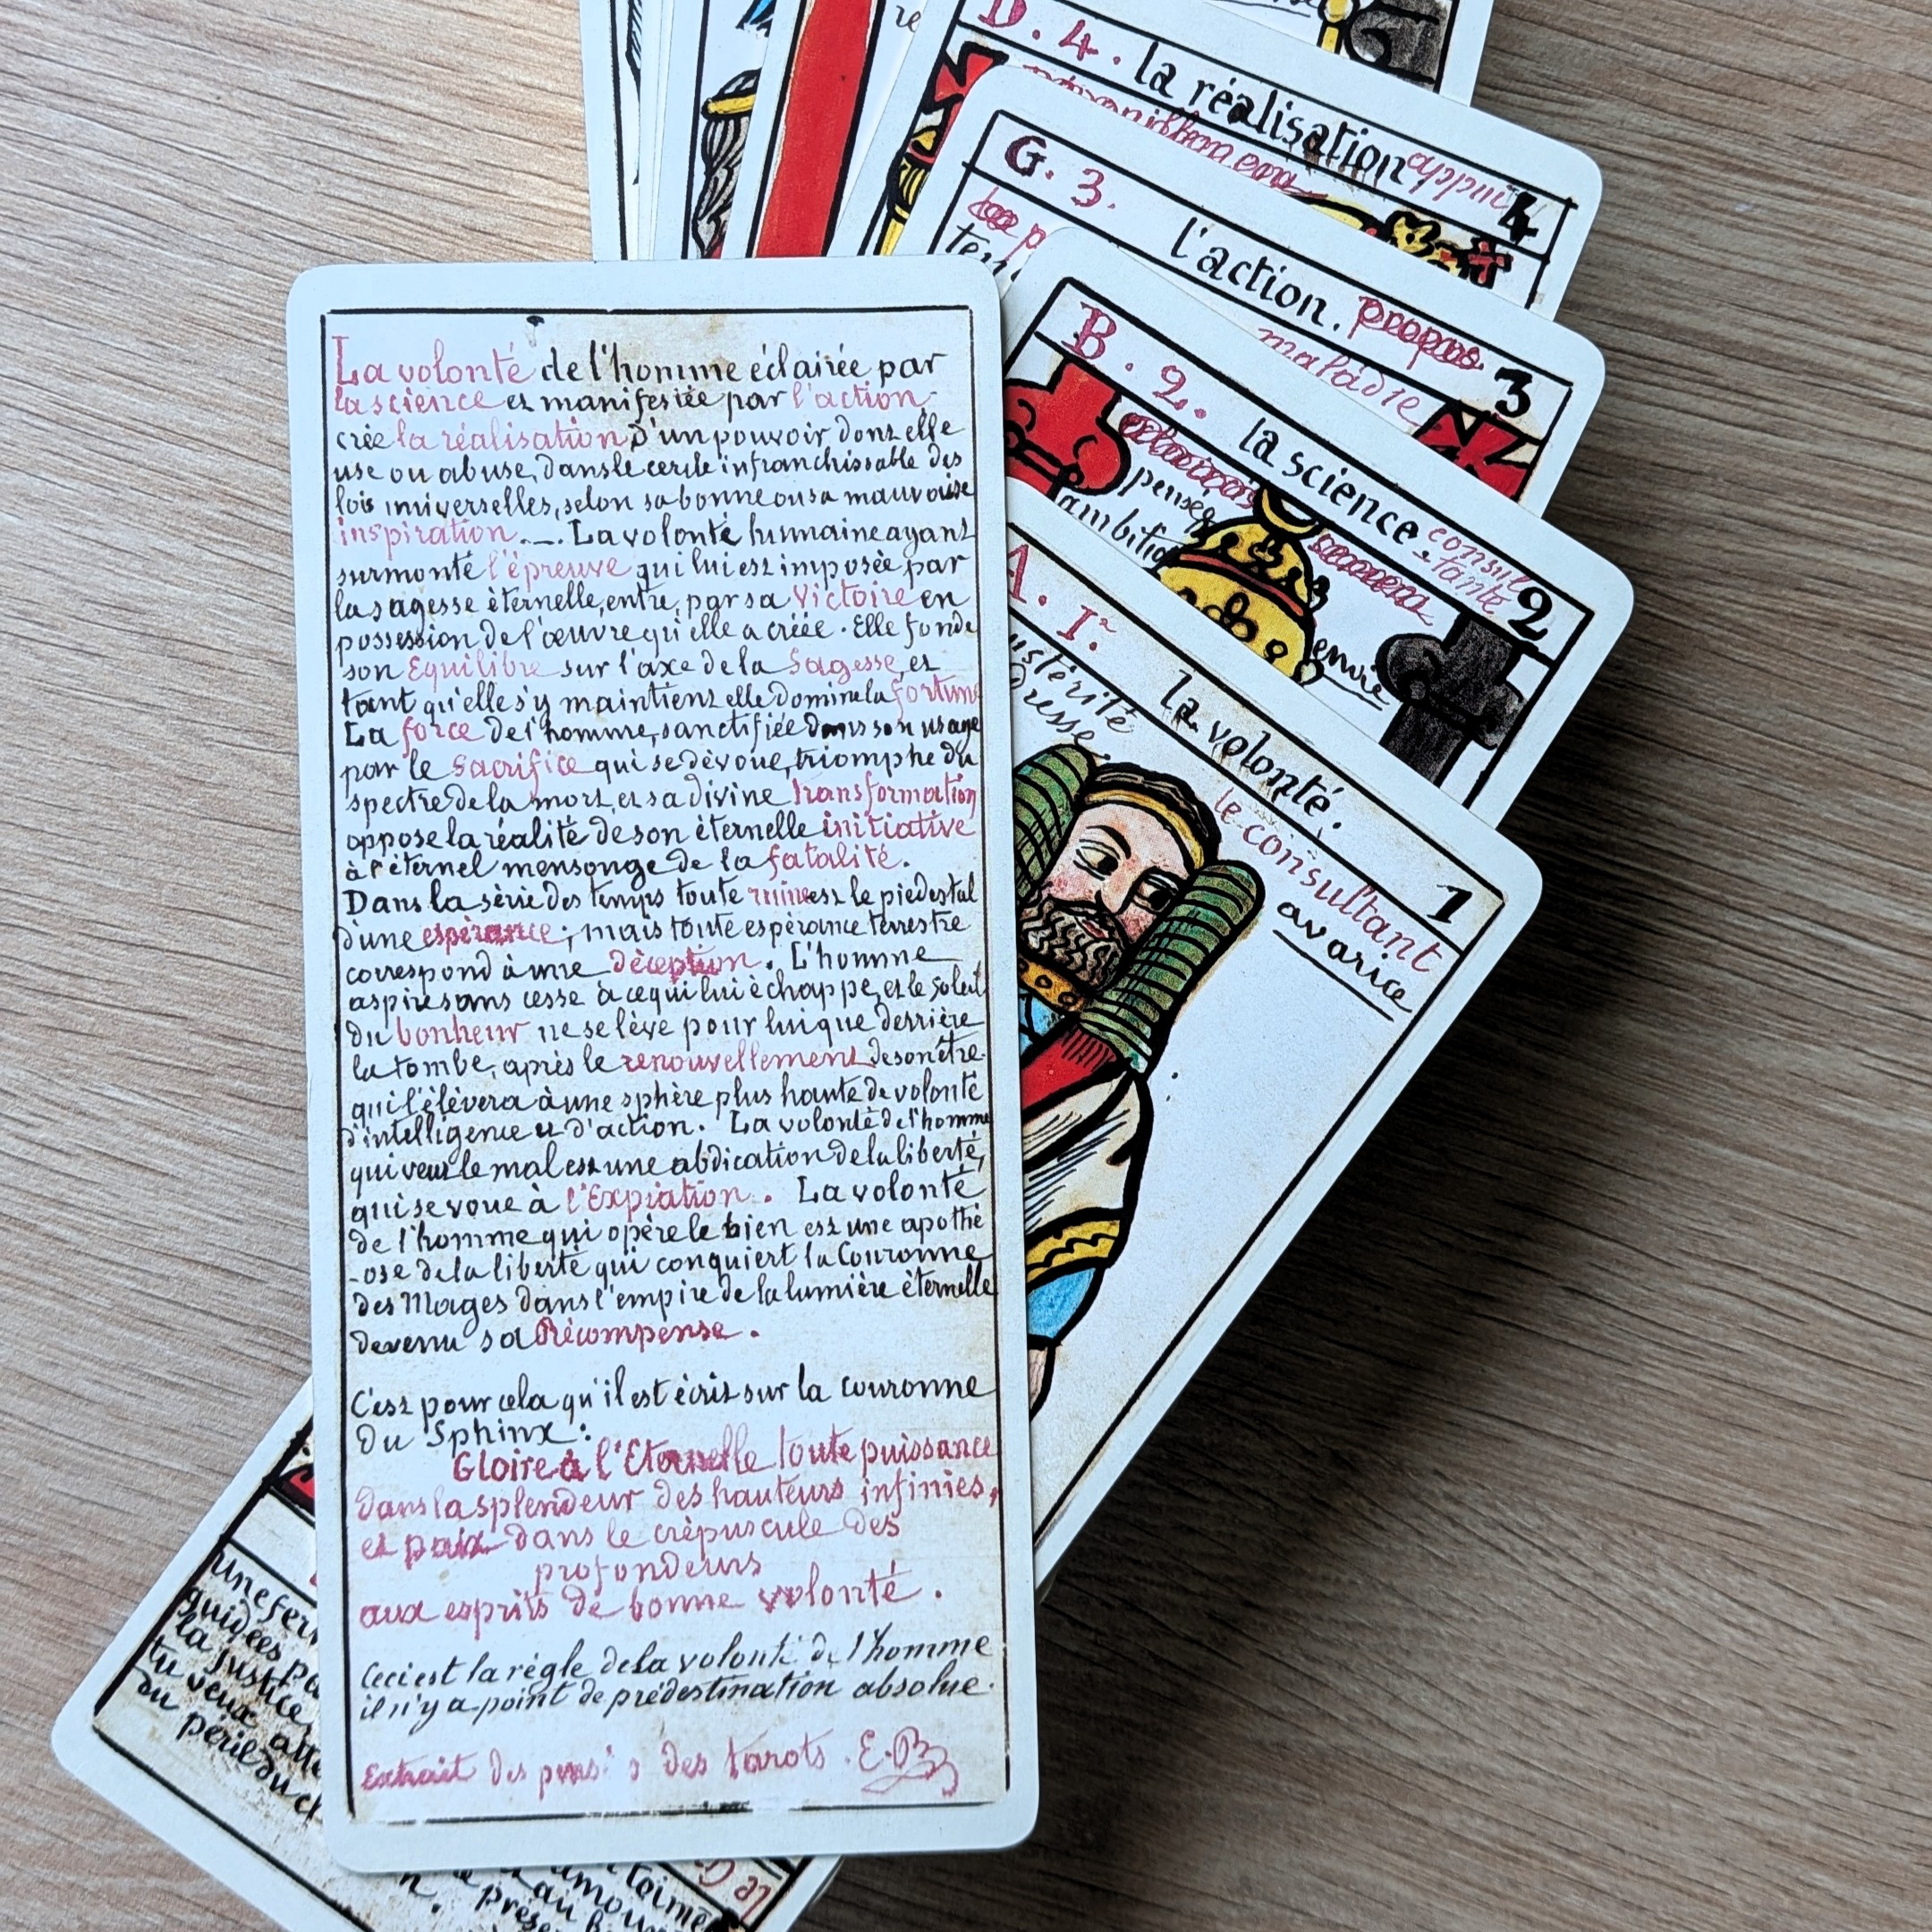 La volonté de l'homme éclairée par
la science et manifestée par l'action
crée la réalisation d'un pouvoir dont elle
use ou abuse, dans le cercle infranchissable des
lois universelles, selon sa bonne ou sa mauvaise
inspiration. _. La volonté humaine ayant
surmonté l'épreuve qui lui est imposée par
la sagesse èternelle, entre, par sa Victoire en
possession de l'œuvre qu'elle a créée. Elle fonde
son Equilibre sur l'axe de la Sagesse, et
tant qu'elle s'y maintient elle domine la fortune
La force de l'homme, sanctifiée dans son usage
par le Sacrifice qui se dévoue, triomphe du
spectre de la mort, et sa divine transformation
oppose la réalité de son èternelle initiative
à l'éternel mensonge de la fatalité.
Dans la série des temps toute ruine est le piedestal
d'une espérance; mais toute espérance terrestre
correspond à une déception. L'homme
aspire sans cesse à ce qui lui échappe, et le soleil
du bonheur ne se lève pour lui que derrière
la tombe, après le renouvellement de son être
qui l'élèvera à une sphère plus haute de volonté
d'intelligence et d'action. La volonté de l'homme
qui veut le mal est une abdication de la liberté,
qui se voue à l'Expiation. La volonté
de l'homme qui opère le bien est une apothé
-ose de la liberté qui conquiert la Couronne
des Mages dans l'empire de la lumière èternelle
devenu sa Récompense.
C'est pour cela qu'il est écrit sur la couronne
du Sphinx:
Gloire à l'Eternelle toute puissance
dans la splendeur des hauteurs infinies,
et paix dans le crépuscule des
profondeurs
aux esprits de bonne volonté.
Ceci est la règle de la volonté de l'homme
il n'y a point de prédestination absolue.
Extrait des des tarots. E.B
D. 4. la réalisation appui 4
G. 3. l'action. propos 3
maladie
B. 2. la science consul
-tante 2
pensée
ambition
envie
A. 1. la volonté. 1
le consultant
avarice
guidées
la justice
tu veux
du péril du